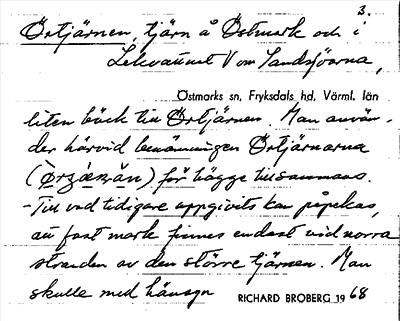 3.
Örtjärnen, tjärn å Östmark och i
Lekvattnet V om Sandsjöarna,
Östmarks sn, Fryksdals hd, Värml. län
liten bäck till Örtjärnen. Man använ-
der härvid benämningen Örtjärnarna
för bägge tillsammans.
- Till vad tidigare uppgivits kan påpekas,
att fast mark finnes endast vid norra
stranden av den större tjärnen. Man
skulle med hänsyn RICHARD BROBERG 1968